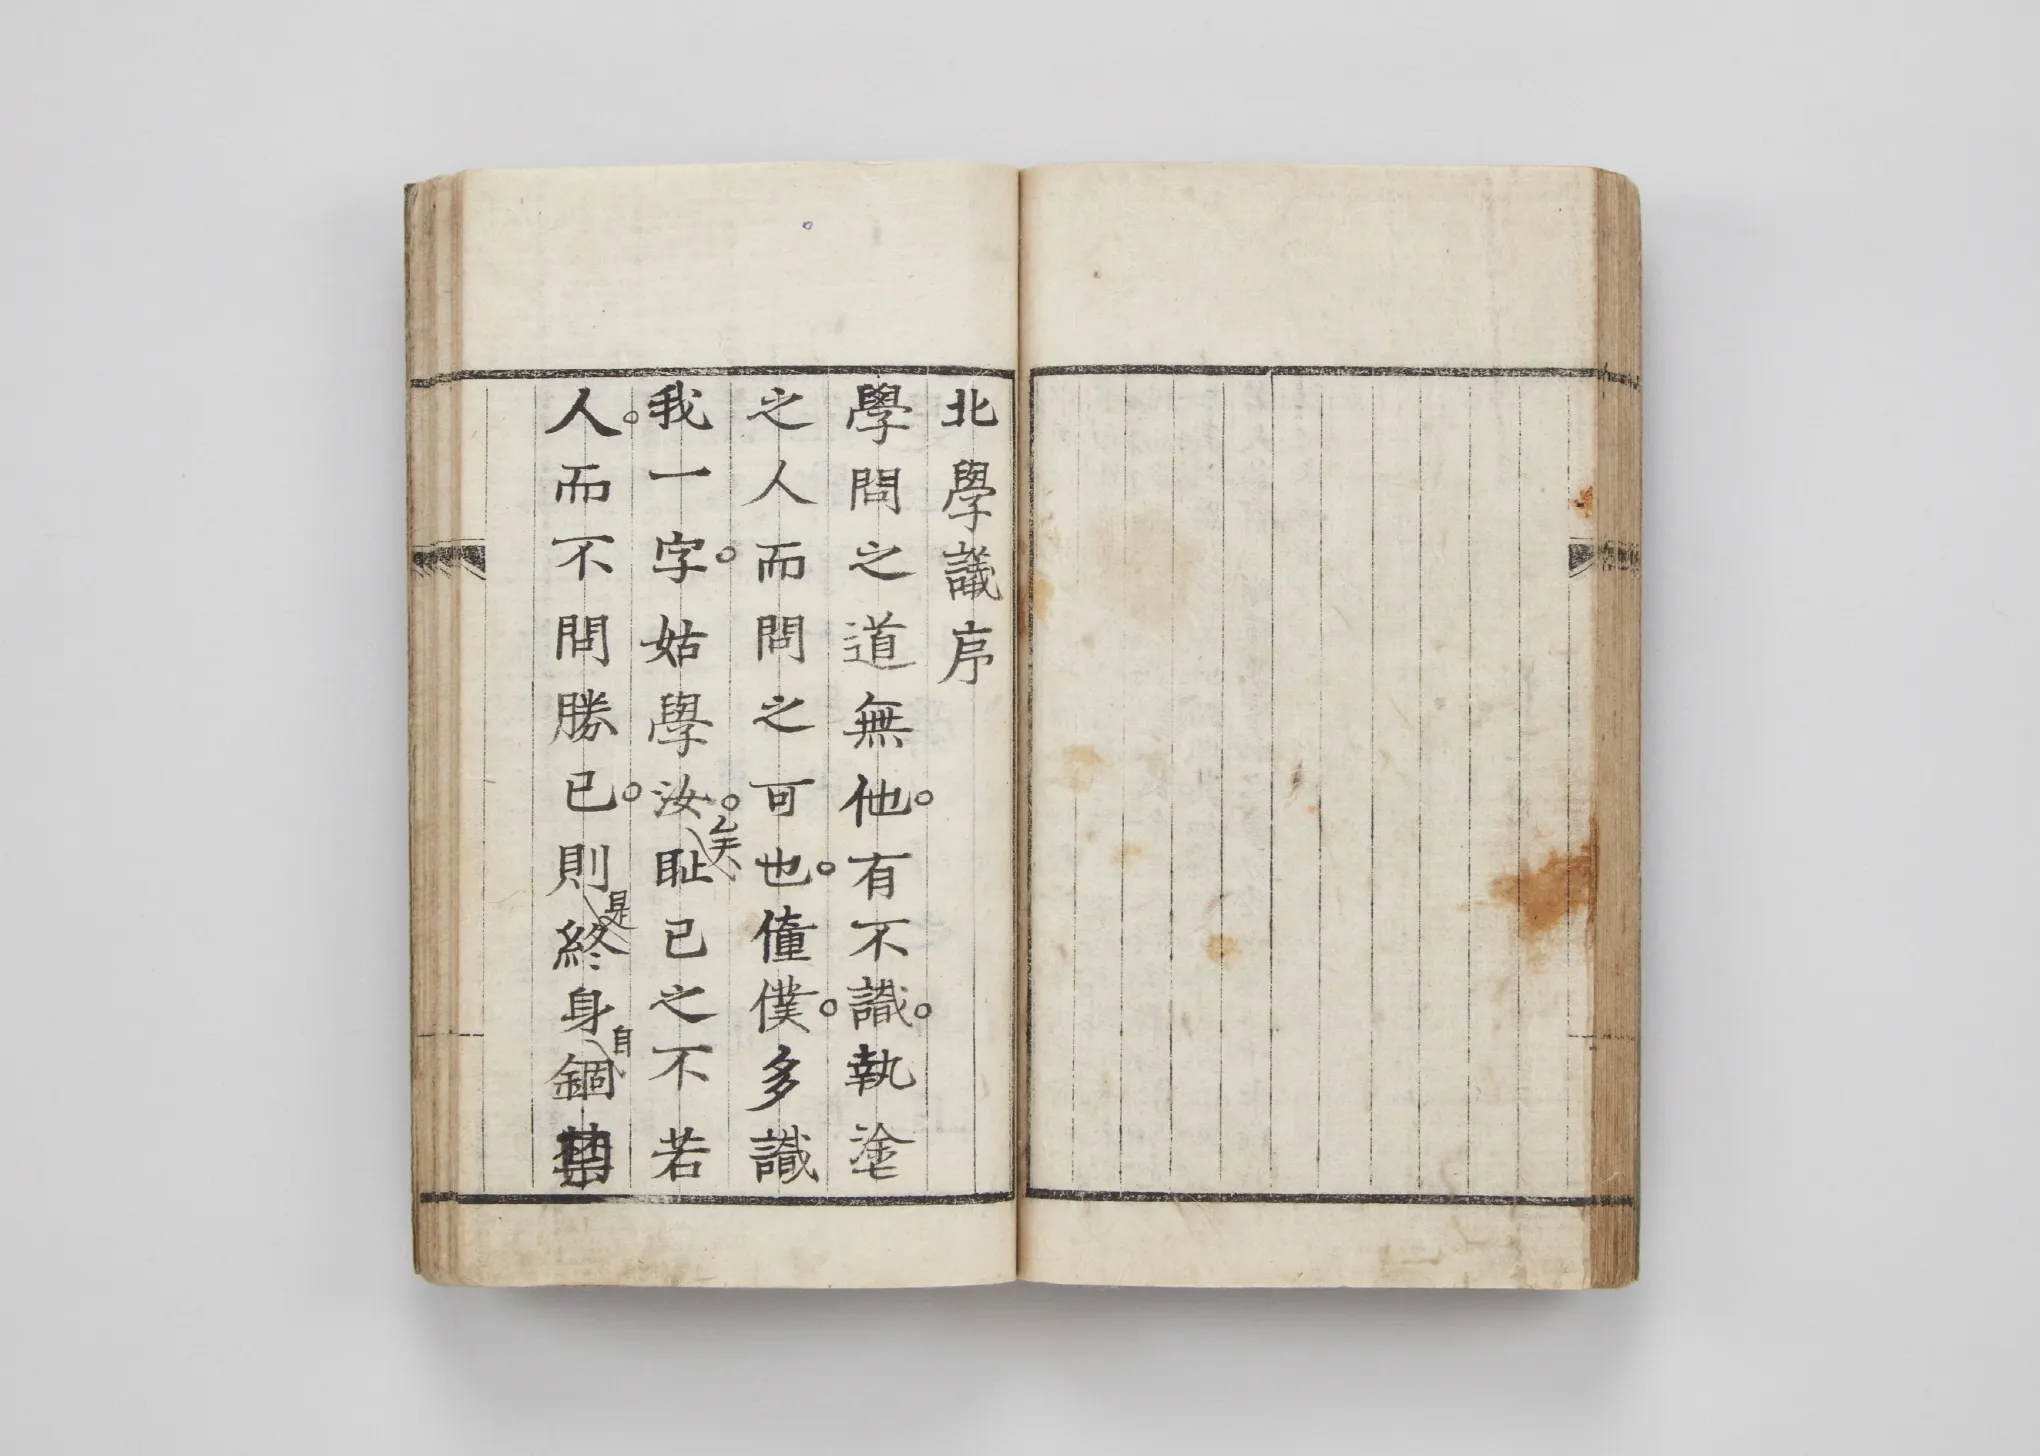 北學議序
學問之道無他。有不識執塗
之人而問之可也。僮僕。多識
我一字。姑學汝。矣耻己之不若
人。而不問勝己。則是終身自錮